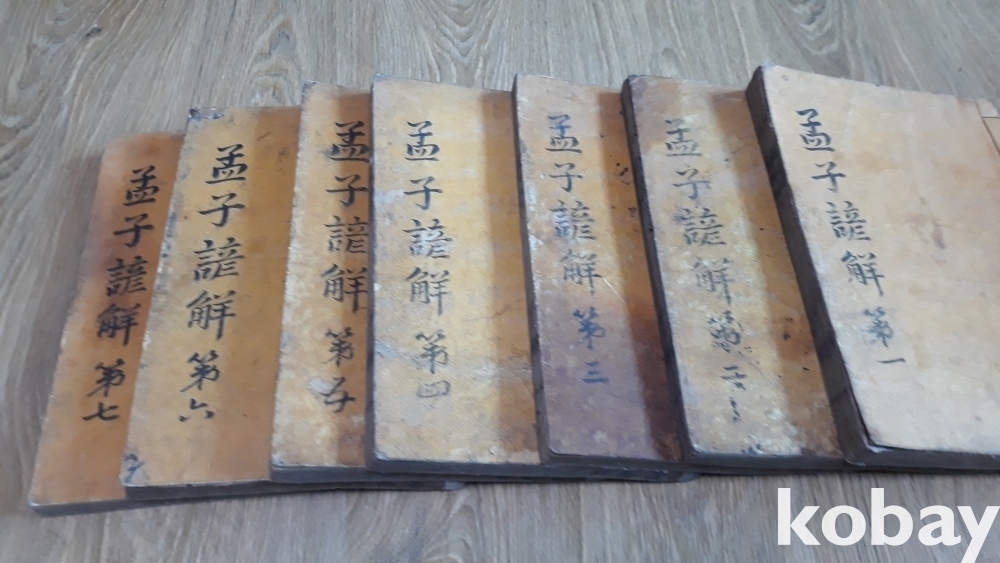 孟子諺觧 第一
孟子諺觧 第
孟子諺觧 第三
孟子諺觧 第四
孟子諺觧 第五
孟子諺觧 第六
孟子諺觧 第七
kobay